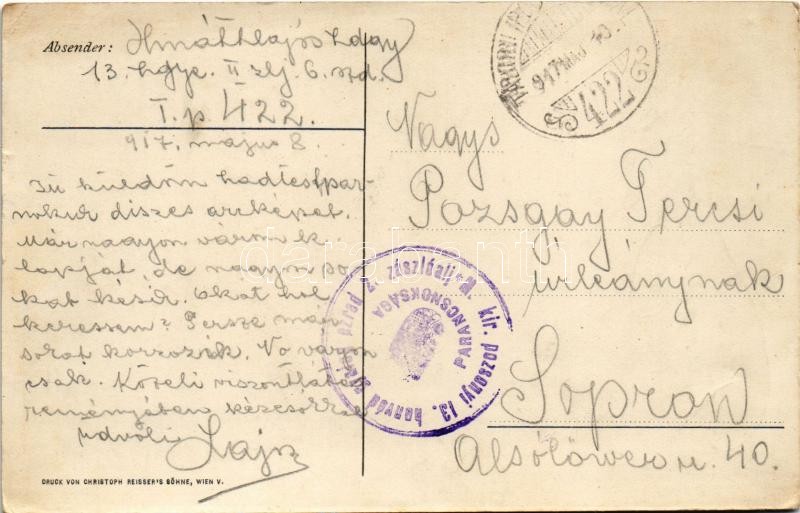 Absender: Hmáth Lajos hdgy
13. hgye. II zlj. 6. szd.
T. p. 422.
917. május 8.
Iú küldöm hadtestpar-
nokur díszes arcképét.
Már nagyon várom k
lapját, de nagyon so
kat késik. Okát hol
keressem? Persze már
sorat korzozik. No várjon
csak. Közeli viszontlátás
reményjében kézcsókkal
üdvözli Lajos
DRUCK VON CHRISTOPH REISSER'S SÖHNE, WIEN V.
917 MÁJ 10.
422
Nagys
Pozsgay Tercsi
úrleánynak
Sopron
Alsólöwer u. 40.
M. kir. pozsonyi 13. honvéd gyalog ezred 2. zászlóalj
PARANCSNOKSÁGA
darabanth